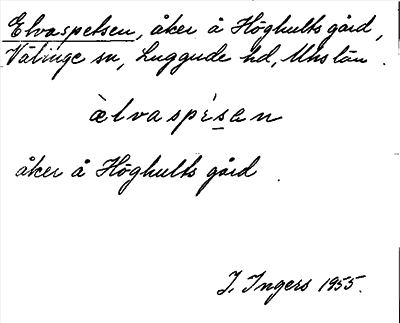 Elvaspetsen, åker å Höghults gård,
Välinge sn, Luggude hd, Mhs län.
ælvaspèsan
åker å Höghults gård.
I. Ingers 1955.